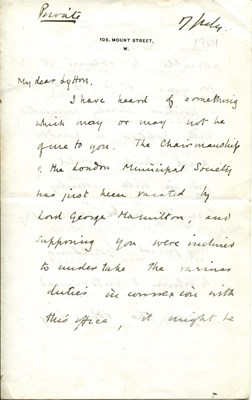 Private
17 July.
1901
105, MOUNT STREET,
W.
My dear Lytton,
I have heard of something
which may or may not be
of use to you. The Chairmanship
of the London Municipal Society
has just been vacated by
Lord George Hamilton, and
supposing you were inclined
to undertake the various
duties in connexion with
this office, it might be